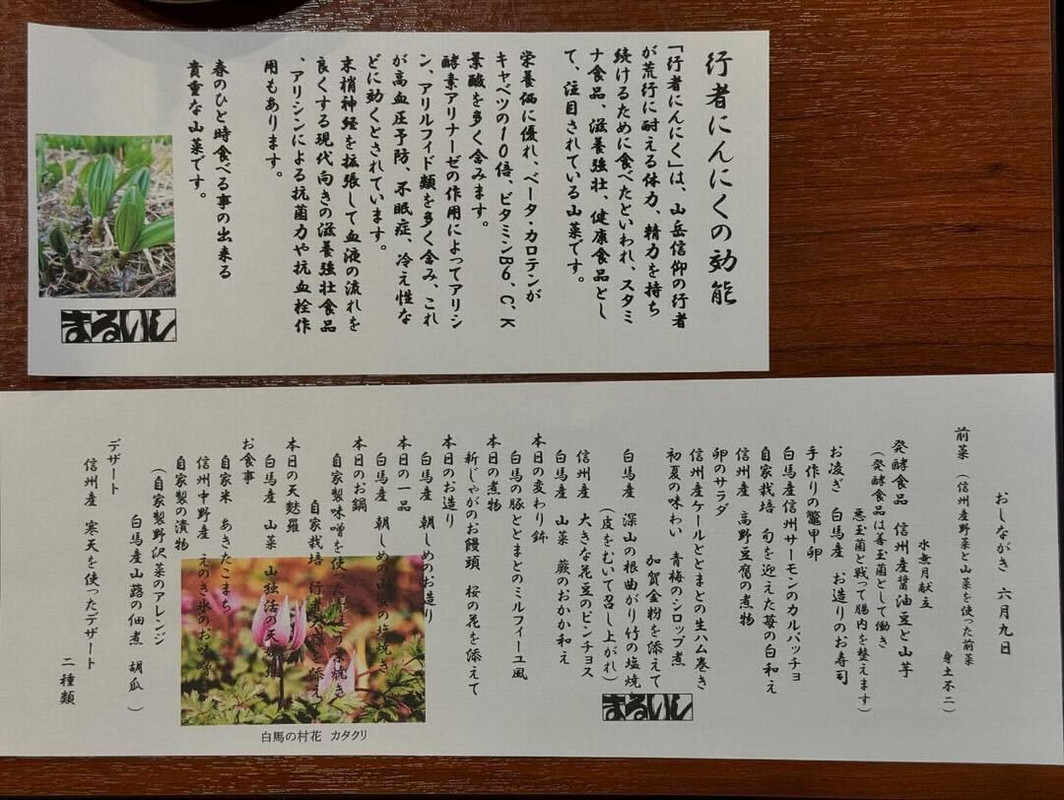 行者にんにくの効能
「行者にんにく」は、山岳信仰の行者
が荒行に耐える体力、精力を持ち
続けるために食べたといわれ、スタミ
ナ食品、滋養強壮、健康食品とし
て、注目されている山菜です。
栄養価に優れ、ベータ・カロテンが
キャベツの10倍、ビタミンB6、C、K
葉酸を多く含みます。
酵素アリナーゼの作用によってアリシ
ン、アリルフィド類を多く含み、これ
が高血圧予防、不眠症、冷え性な
どに効くとされています。
末梢神経を拡張して血液の流れを
良くする現代向きの滋養強壮食品
、アリシンによる抗菌力や抗血栓作
用もあります。
春のひと時食べる事の出来る
貴重な山菜です。
まるいし
おしながき 六月九日
前菜 (信州産野菜と山菜を使った前菜
身土不二)
水無月献立
発酵食品 信州産醤油豆と山芋
(発酵食品は善玉菌として働き
悪玉菌と戦って腸内を整えます)
お凌ぎ 白馬産 お造りのお寿司
手作りの鼈甲卵
白馬産信州サーモンのカルパッチョ
自家栽培 旬を迎えた苺の白和え
信州産 高野豆腐の煮物
卵のサラダ
信州産ケールととまとの生ハム巻き
初夏の味わい 青梅のシロップ煮
加賀金粉を添えて
白馬産 深山の根曲がり竹の塩焼
(皮をむいて召し上がれ)
信州産 大きな花豆のピンチョス
白馬産 山菜 蕨のおかか和え
本日の変わり鉢
白馬の豚ととまとのミルフィーユ風
本日の煮物
新じゃがのお饅頭 桜の花を添えて
本日のお造り
白馬産 朝しめのお造り
本日の一品
白馬産 朝しめの の塩焼き
本日のお鍋
自家製味噌を使った 焼き
自家栽培 行者 を添え
本日の天麩羅
白馬産 山菜 山独活の天
お食事
自家米 あきたこまち
信州中野産 えのき氷のお味噌
自家製の漬物
(自家製野沢菜のアレンジ
白馬産山蕗の佃煮 胡瓜 )
デザート
信州産 寒天を使ったデザート
二種類
まるいし
白馬の村花 カタクリ